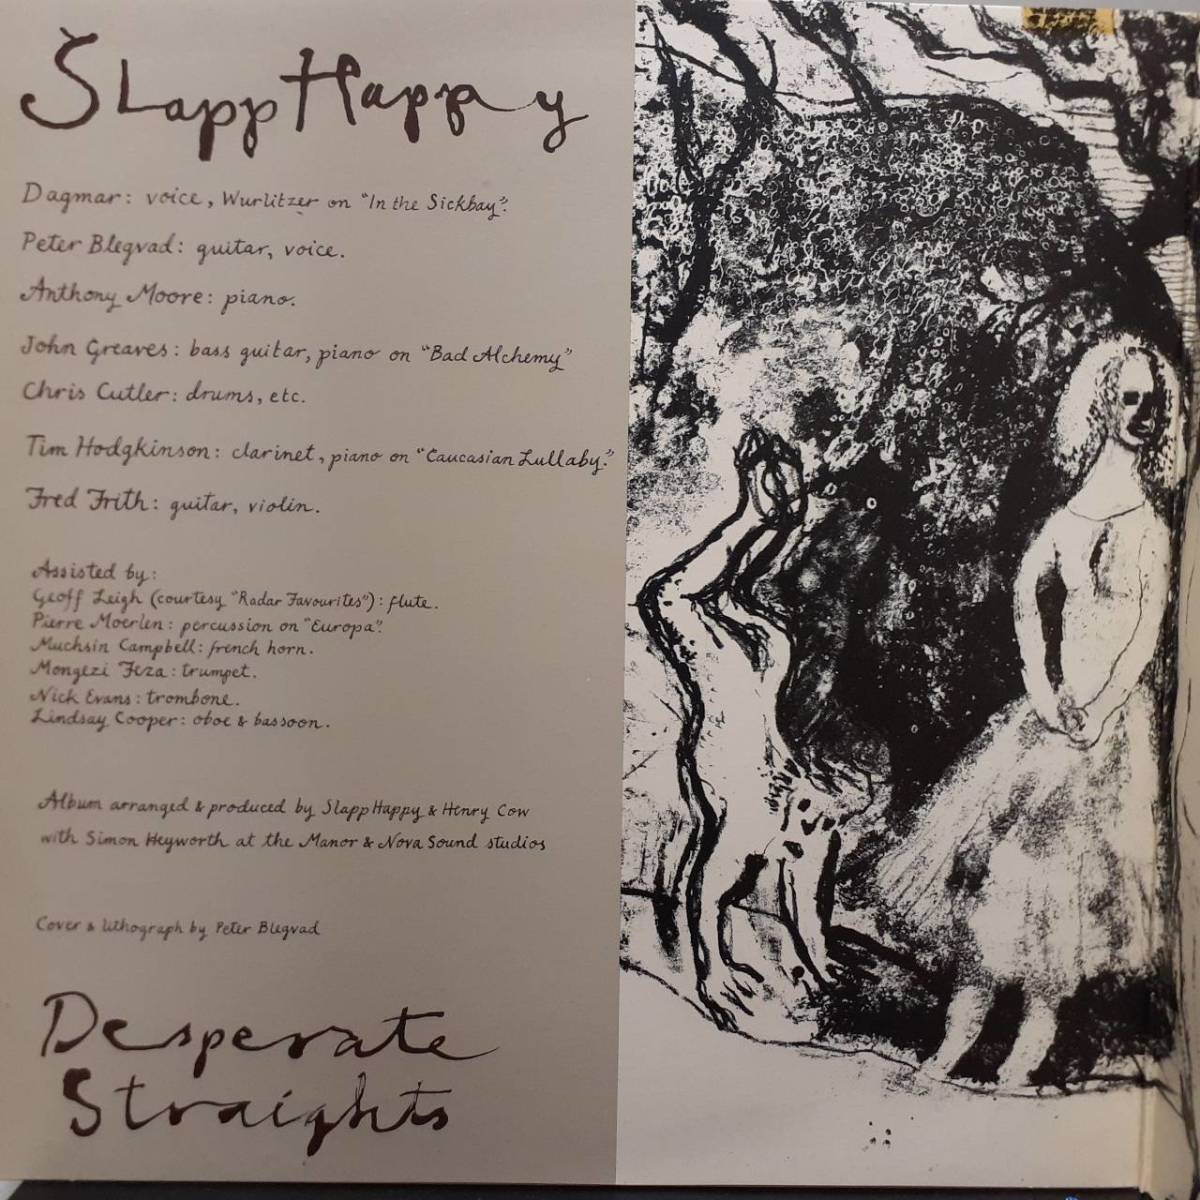 Slapp Happy
Dagmar: voice, Wurlitzer on "In the Sickbay".
Peter Blegvad: guitar, voice.
Anthony Moore: piano.
John Greaves: bass guitar, piano on "Bad Alchemy"
Chris Cutler: drums, etc.
Tim Hodgkinson: clarinet, piano on "Caucasian Lullaby."
Fred Frith: guitar, violin.
Assisted by:
Geoff Leigh (courtesy "Radar Favourites"): flute.
Pierre Moerlen: percussion on "Europa".
Muchsin Campbell: french horn.
Mongezi Feza: trumpet.
Nick Evans: trombone.
Lindsay Cooper: oboe & bassoon.
Album arranged & produced by Slapp Happy & Henry Cow
with Simon Heyworth at the Manor & Nova Sound studios
Cover & lithograph by Peter Blegvad
Desperate
Straights